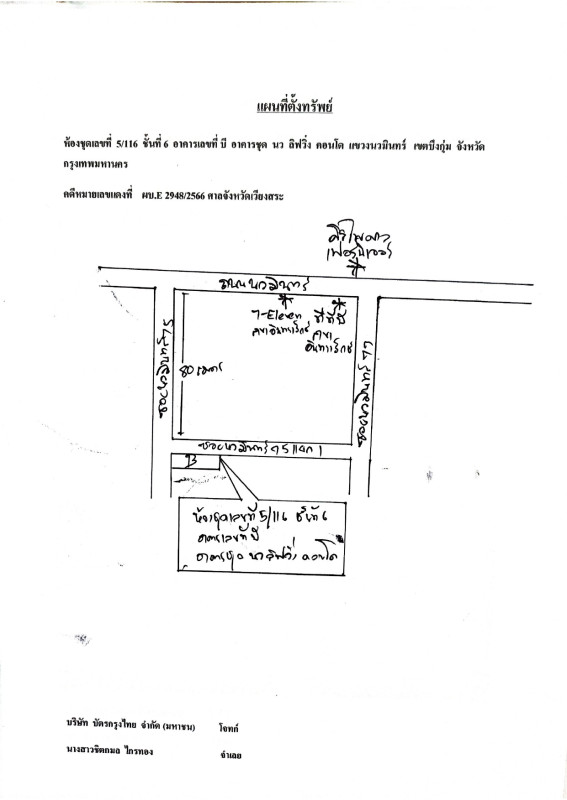 แผนที่ตั้งทรัพย์
ห้องชุดเลขที่ 5/116 ชั้นที่ 6 อาคารเลขที่ บี อาคารชุด นว ลิฟวิ่ง คอนโด แขวงนวมินทร์ เขตบึงกุ่ม จังหวัด
กรุงเทพมหานคร
คดีหมายเลขแดงที่ ผบ.E 2948/2566 ศาลจังหวัดเวียงสระ
เฟอร์นิเจอร์
ถนนนวมินทร์
7-Eleven
สาขาอินทรารักษ์
ทีทีบี
สาขา
อินทรารักษ์
80 เมตร
ซอยนวมินทร์
ซอยนวมินทร์ 77
ซอยนวมินทร์ 75 แยก 1
B
ห้องชุดเลขที่ 5/116 ชั้นที่ 6
อาคารเลขที่ บี
อาคารชุด นว ลิฟวิ่ง คอนโด
บริษัท บัตรกรุงไทย จำกัด (มหาชน) โจทก์
นางสาวชิดกมล ไกรทอง จำเลย